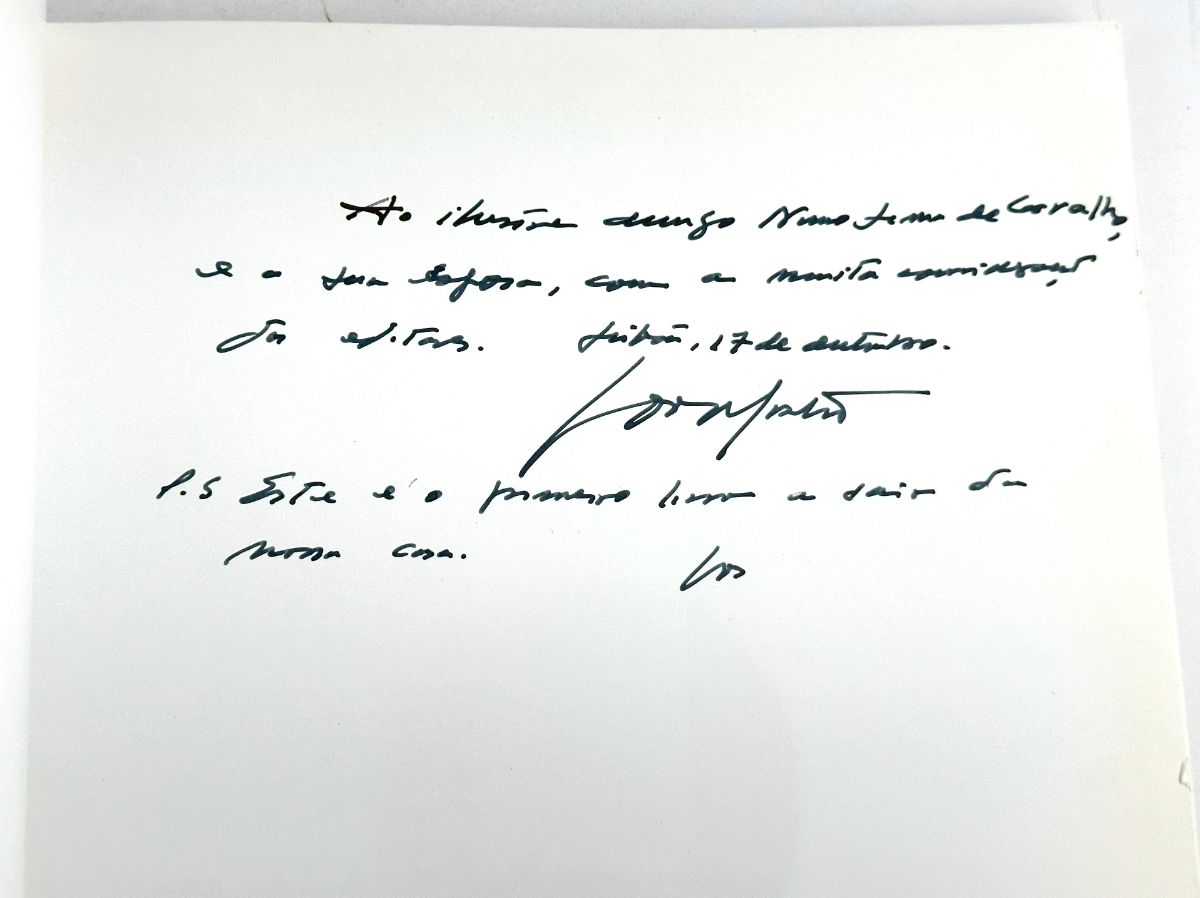 Ao ilustre amigo Nuno Lima de Carvalho,
e a sua esposa, com a muita consideração
da editora. Lisboa, 17 de outubro.
P.S Este é o primeiro livro a sair da
nossa casa.